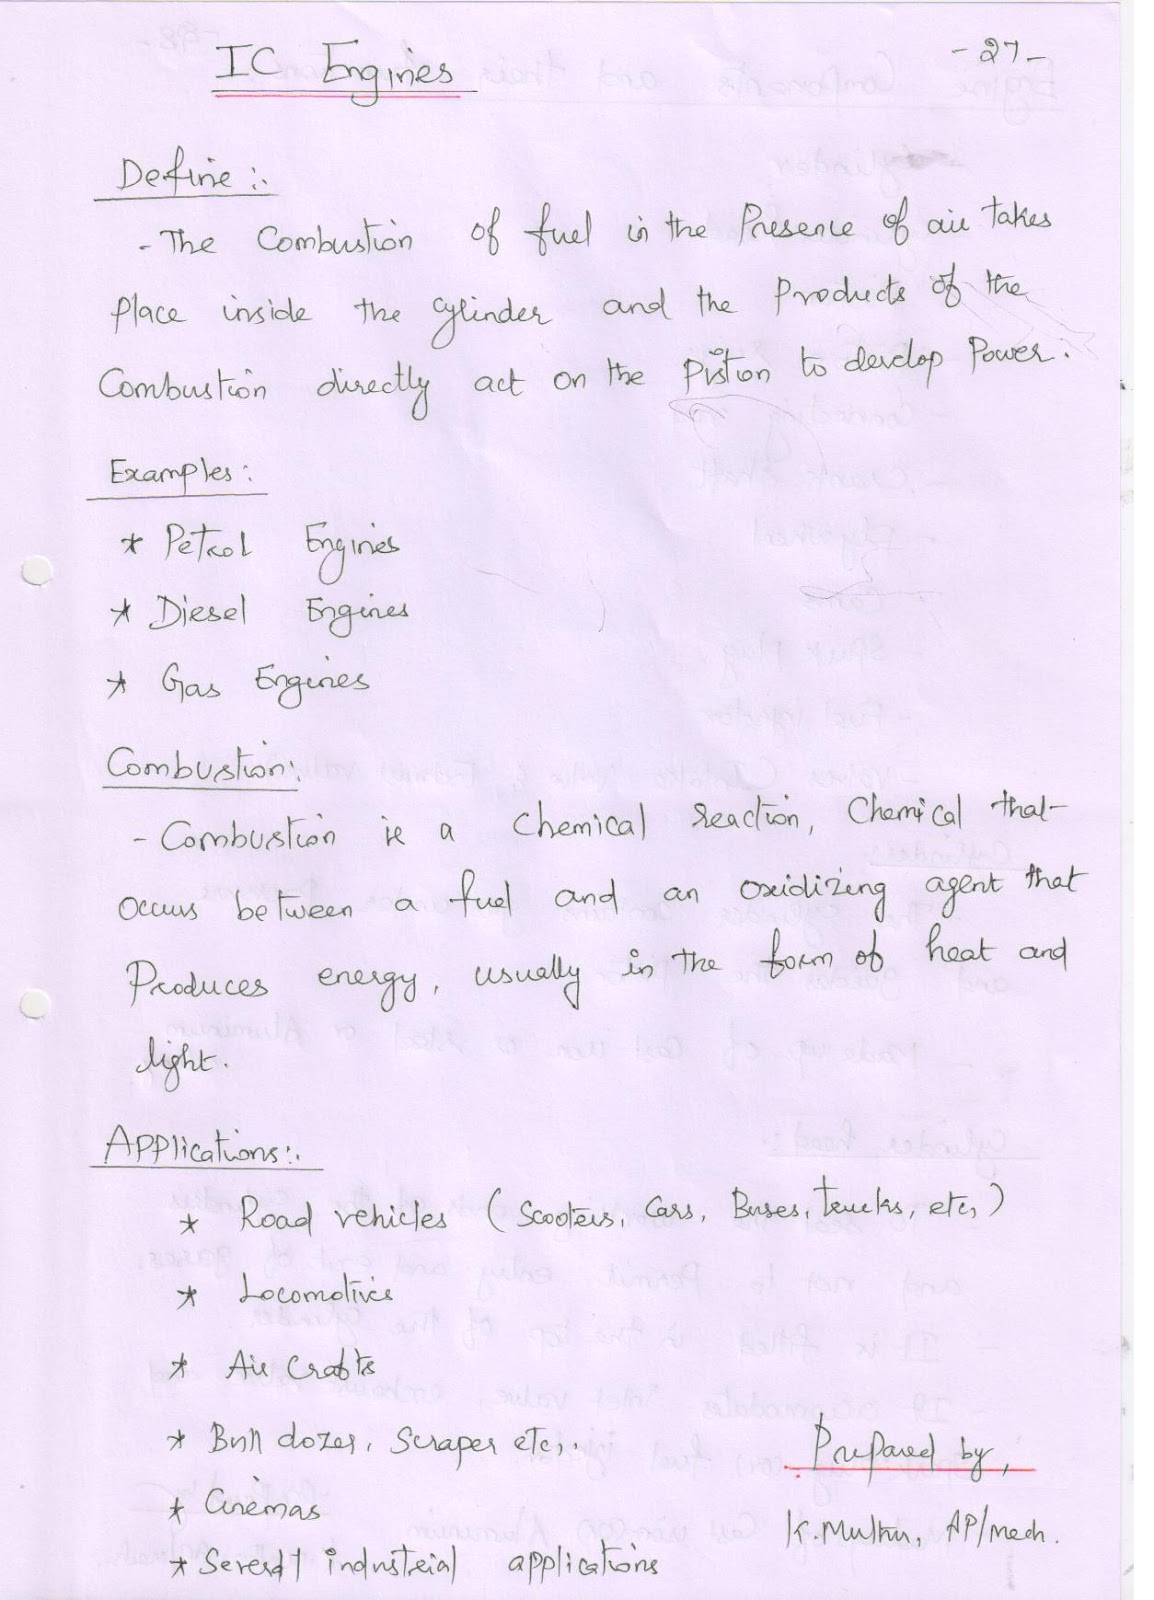 IC Engines
-27-
Define :-
- The Combustion of fuel in the Presence of air takes
Place inside the cylinder and the Products of the
Combustion directly act on the Piston to develop Power.
Examples:
* Petrol Engines
* Diesel Engines
* Gas Engines
Combustion:
- Combustion is a Chemical reaction, Chemical that
occurs between a fuel and an oxidizing agent that
Produces energy, usually in the form of heat and
light.
Applications:-
* Road vehicles (Scooters, Cars, Buses, trucks, etc,)
* Locomotives
* Air Crafts
* Bull dozer, Scraper etc,.
* Cinemas
* Several industrial applications
Prepared by,
K.Muthu, AP/Mech.